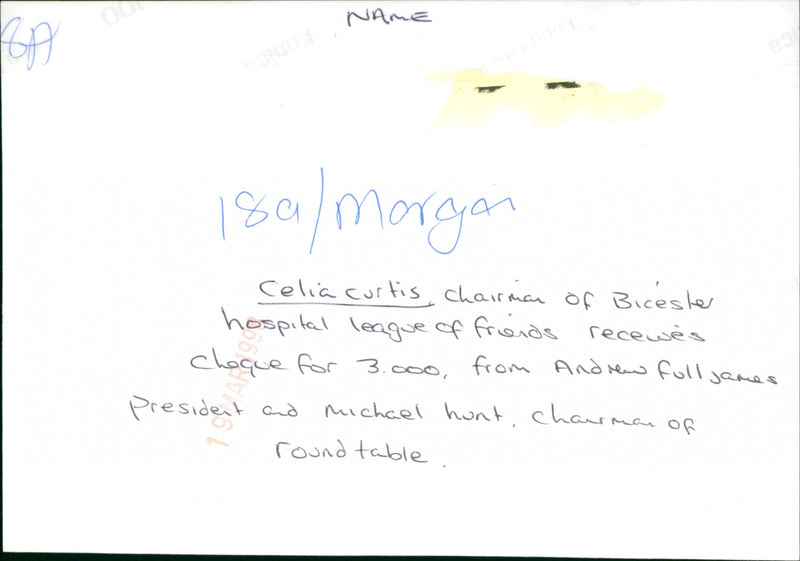 NAME
8A
18a/morgan
Celia curtis, chairman of Bicester
hospital league of friends receives
cheque for 3.000, from Andrew fulljames
president and michael hunt, chairman of
round table.
19 MAR 1999